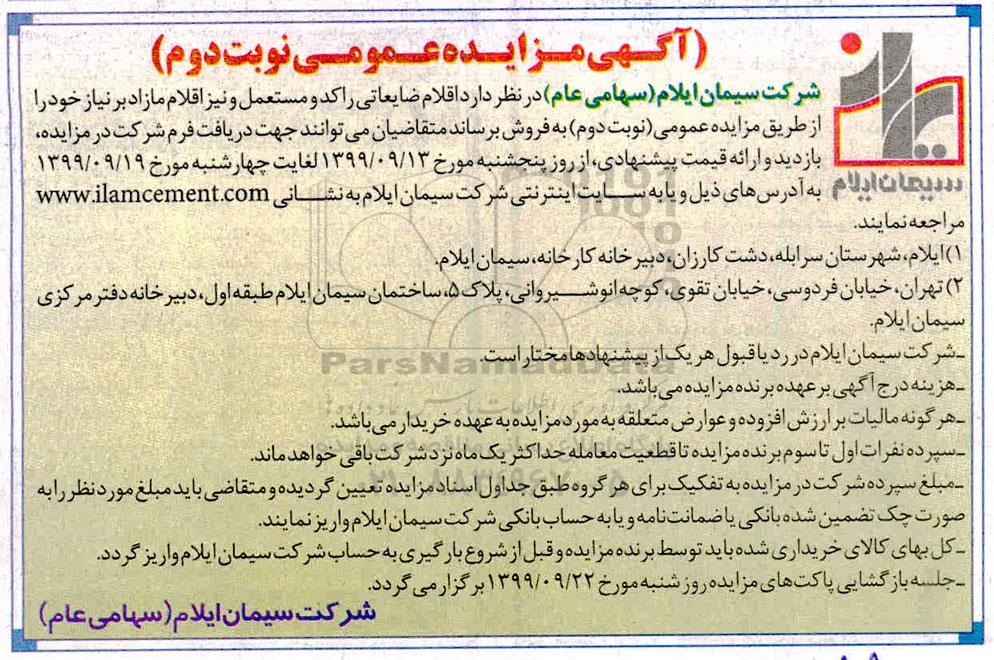 (آگهی مزایده عمومی نوبت دوم)
شرکت سیمان ایلام (سهامی عام) در نظر دارد اقلام ضایعاتی راکد و مستعمل و نیز اقلام مازاد بر نیاز خود را
از طریق مزایده عمومی (نوبت دوم) به فروش برساند متقاضیان می توانند جهت دریافت فرم شرکت در مزایده،
بازدید و ارائه قیمت پیشنهادی، از روز پنجشنبه مورخ ۱۳۹۹/۰۹/۱۳ لغایت چهارشنبه مورخ ۱۳۹۹/۰۹/۱۹
به آدرس های ذیل و یا به سایت اینترنتی شرکت سیمان ایلام به نشانی www.ilamcement.com
مراجعه نمایند.
سیمان ایلام
۱) ایلام، شهرستان سرابله، دشت کارزان، دبیرخانه کارخانه، سیمان ایلام.
۲) تهران، خیابان فردوسی، خیابان تقوی، کوچه انوشیروانی، پلاک ۵، ساختمان سیمان ایلام طبقه اول، دبیرخانه دفتر مرکزی
سیمان ایلام.
ـ شرکت سیمان ایلام در رد یا قبول هر یک از پیشنهادها مختار است.
ParsNamadData
ـ هزینه درج آگهی بر عهده برنده مزایده می باشد.
ـ هر گونه مالیات بر ارزش افزوده و عوارض متعلقه به مورد مزایده به عهده خریدار می باشد.
ـ سپرده نفرات اول تا سوم برنده مزایده تا قطعیت معامله حداکثر یک ماه نزد شرکت باقی خواهد ماند.
ـ مبلغ سپرده شرکت در مزایده به تفکیک برای هر گروه طبق جداول اسناد مزایده تعیین گردیده و متقاضی باید مبلغ مورد نظر را به
صورت چک تضمین شده بانکی یا ضمانت نامه و یا به حساب بانکی شرکت سیمان ایلام واریز نمایند.
ـ کل بهای کالای خریداری شده باید توسط برنده مزایده و قبل از شروع بارگیری به حساب شرکت سیمان ایلام واریز گردد.
ـ جلسه بازگشایی پاکت های مزایده روز شنبه مورخ ۱۳۹۹/۰۹/۲۲ برگزار می گردد.
شرکت سیمان ایلام (سهامی عام)